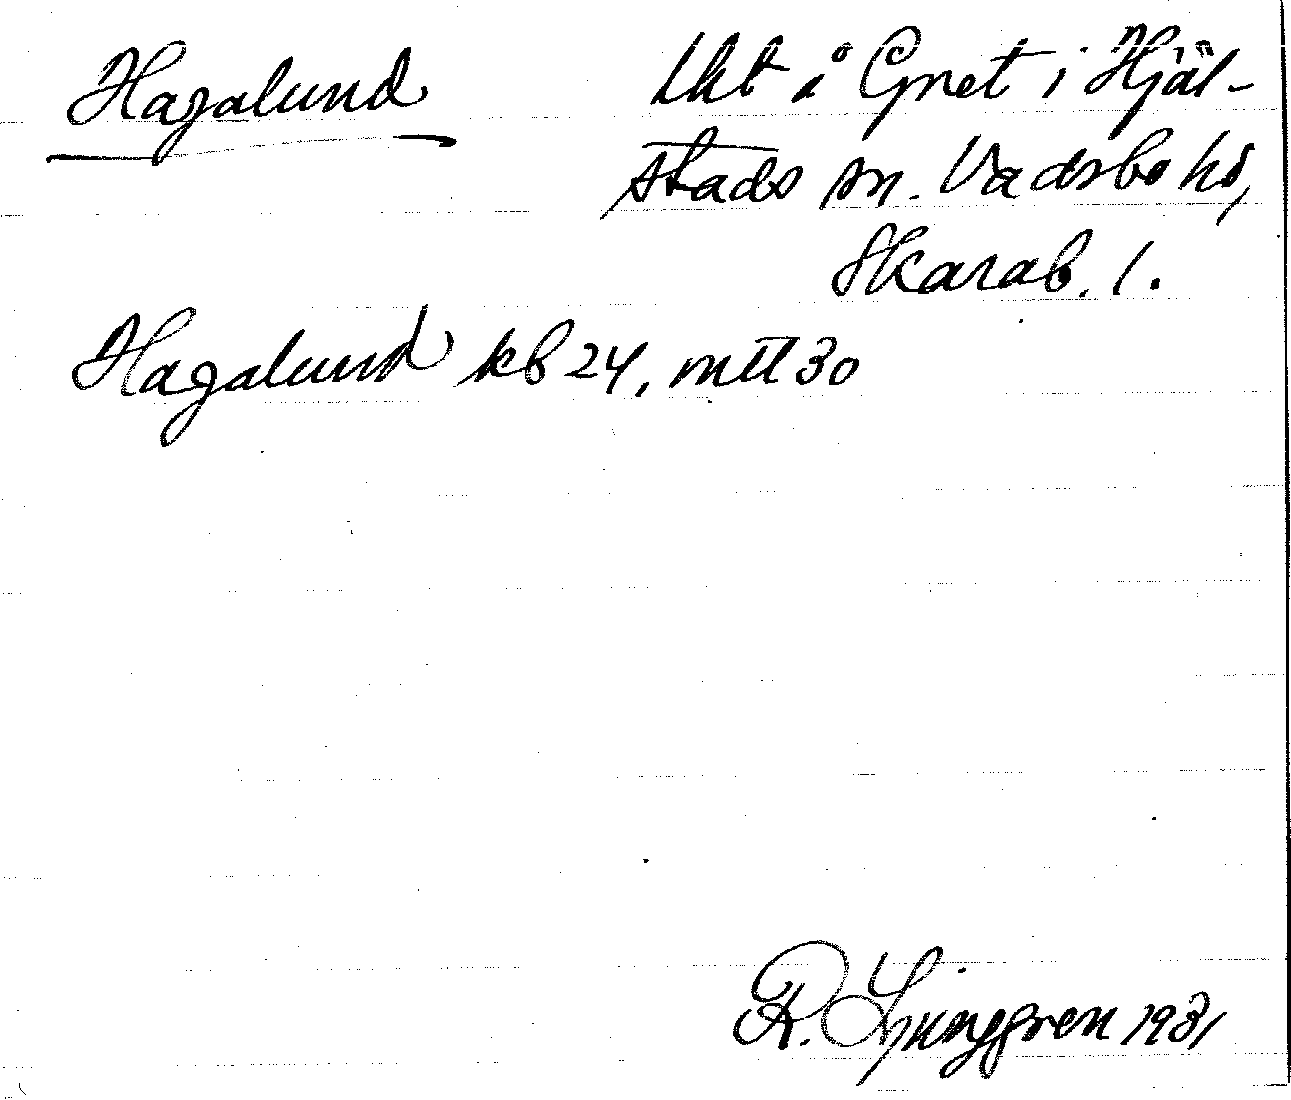 Hagalund
Lht å Gnet i Hjäl-
stads sn. Vadsbo hd,
Skarab. l.
Hagalund kb 24, mtl 30
R. Ljunggren 1931